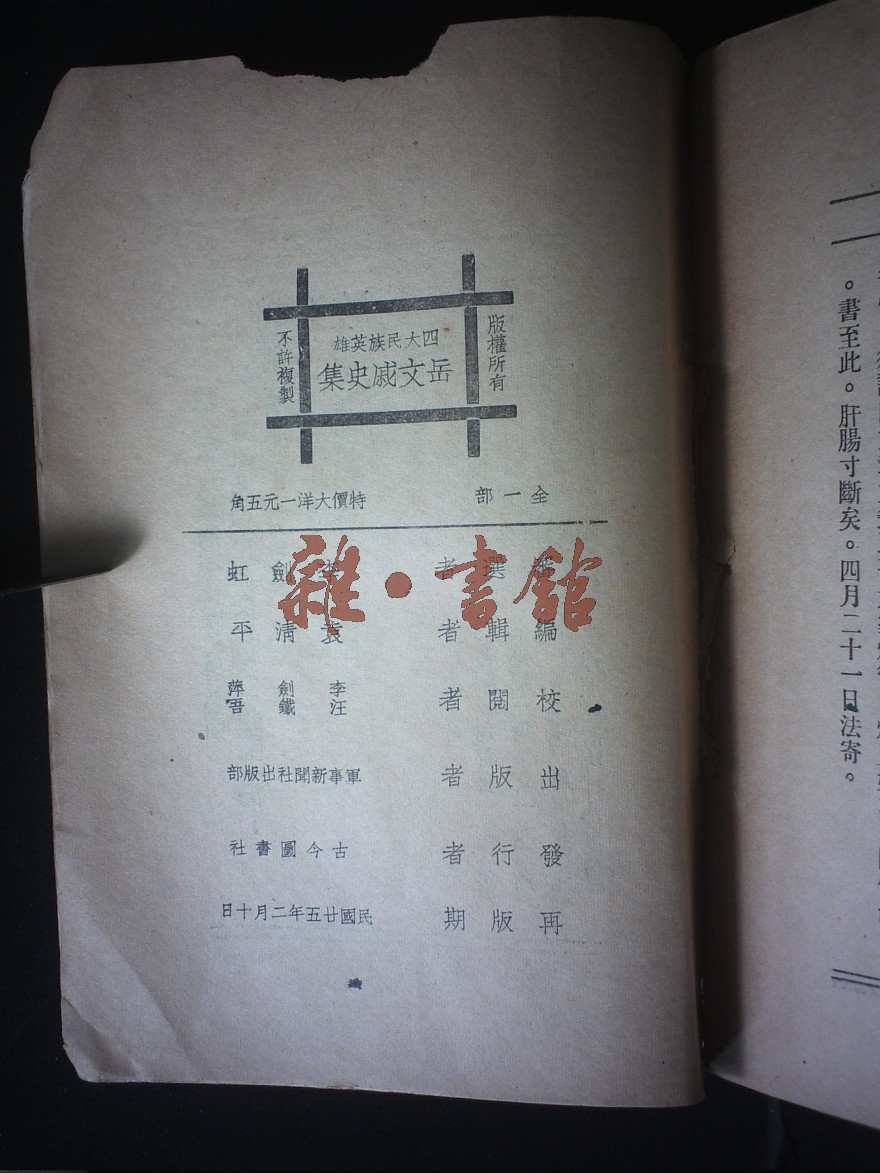 版權所有
四大民族英雄
岳文戚史集
不許複製
全一部 特價大洋一元五角
選者 劍虹
編輯者 袁清平
校閱者 李劍萍 汪鐵吾
出版者 軍事新聞社出版部
發行者 古今圖書社
再版期 民國廿五年二月十日
雜·書館
。書至此。肝腸寸斷矣。四月二十一日法寄。